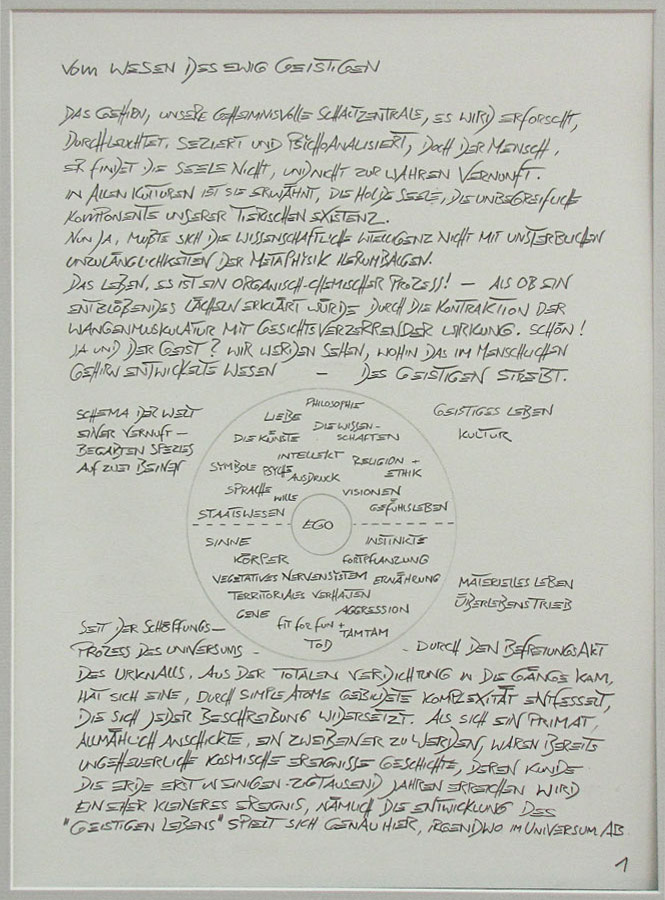 VOM WESEN DES EWIG GEISTIGEN
DAS GEHIRN, UNSERE GEHEIMNISVOLLE SCHALTZENTRALE, ES WIRD ERFORSCHT,
DURCHLEUCHTET, SEZIERT UND PSYCHOANALISIERT, DOCH DER MENSCH,
ER FINDET DIE SEELE NICHT, UND NICHT ZUR WAHREN VERNUNFT.
IN ALLEN KULTUREN IST SIE ERWÄHNT, DIE HOLDE SEELE, DIE UNBEGREIFLICHE
KOMPONENTE UNSERER TIERISCHEN EXISTENZ.
NUN JA, MUßTE SICH DIE WISSENSCHAFTLICHE INTELLIGENZ NICHT MIT UNSTERBLICHEN
UNZULÄNGLICHKEITEN DER METAPHYSIK HERUMBALGEN.
DAS LEBEN, ES IST EIN ORGANISCH-CHEMISCHER PROZESS! — ALS OB EIN
ENTBLÖßENDES LÄCHELN ERKLÄRT WÜRDE DURCH DIE KONTRAKTION DER
WANGENMUSKULATUR MIT GESICHTSVERZERRENDER WIRKUNG. SCHÖN!
JA UND DER GEIST? WIR WERDEN SEHEN, WOHIN DAS IM MENSCHLICHEN
GEHIRN ENTWICKELTE WESEN — DES GEISTIGEN STREBT.
SCHEMA DER WELT
EINER VERNUFT-
BEGABTEN SPEZIES
AUF ZWEI BEINEN
PHILOSOPHIE
LIEBE
DIE WISSEN-
SCHAFTEN
DIE KÜNSTE
INTELLEKT
RELIGION +
ETHIK
SYMBOLE
PSYCHE
AUSDRUCK
SPRACHE
WILLE
VISIONEN
STAATSWESEN
GEFÜHLSLEBEN
EGO
GEISTIGES LEBEN
KULTUR
SINNE
INSTINKTE
KÖRPER
FORTPFLANZUNG
VEGETATIVES NERVENSYSTEM
ERNÄHRUNG
TERRITORIALES VERHALTEN
GENE
AGGRESSION
FIT FOR FUN +
TAMTAM
TOD
MATERIELLES LEBEN
ÜBERLEBENSTRIEB
SEIT DER SCHÖPFUNGS-
PROZESS DES UNIVERSUMS - - DURCH DEN BEFREIUNGSAKT
DES URKNALLS, AUS DER TOTALEN VERDICHTUNG IN DIE GÄNGE KAM,
HAT SICH EINE, DURCH SIMPLE ATOME GEBILDETE KOMPLEXITÄT ENTFESSELT,
DIE SICH JEDER BESCHREIBUNG WIDERSETZT. ALS SICH EIN PRIMAT,
ALLMÄHLICH ANSCHICKTE, EIN ZWEIBEINER ZU WERDEN, WAREN BEREITS
UNGEHEUERLICHE KOSMISCHE EREIGNISSE GESCHICHTE, DEREN KUNDE
DIE ERDE ERST IN EINIGEN ZIGTAUSEND JAHREN ERREICHEN WIRD
EIN EHER KLEINERES EREIGNIS, NÄMLICH DIE ENTWICKLUNG DES
"GEISTIGEN LEBENS" SPIELT SICH GENAU HIER, IRGENDWO IM UNIVERSUM AB
1